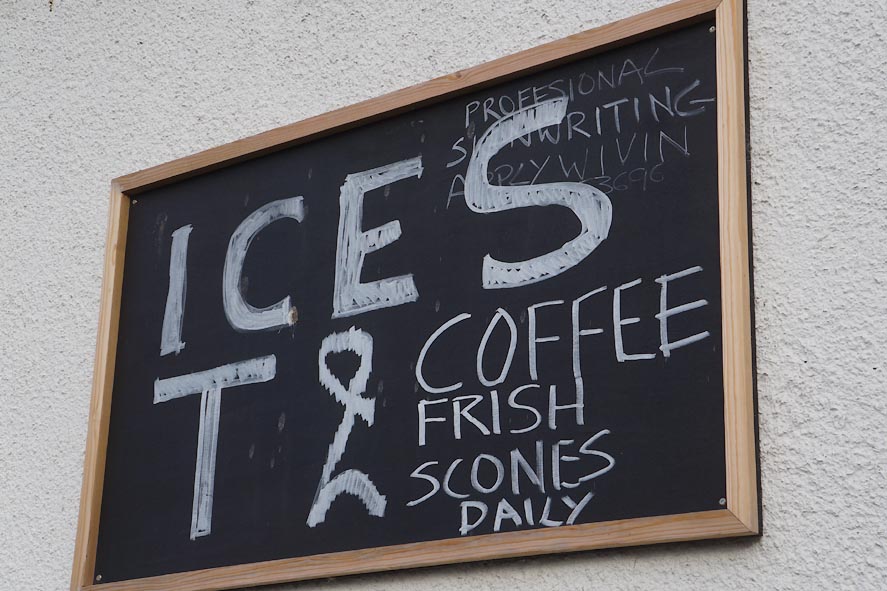 PROFESIONAL
SIGNWRITING
APPLY WIVIN
3696
ICES
T & COFFEE
FRISH
SCONES
DAILY